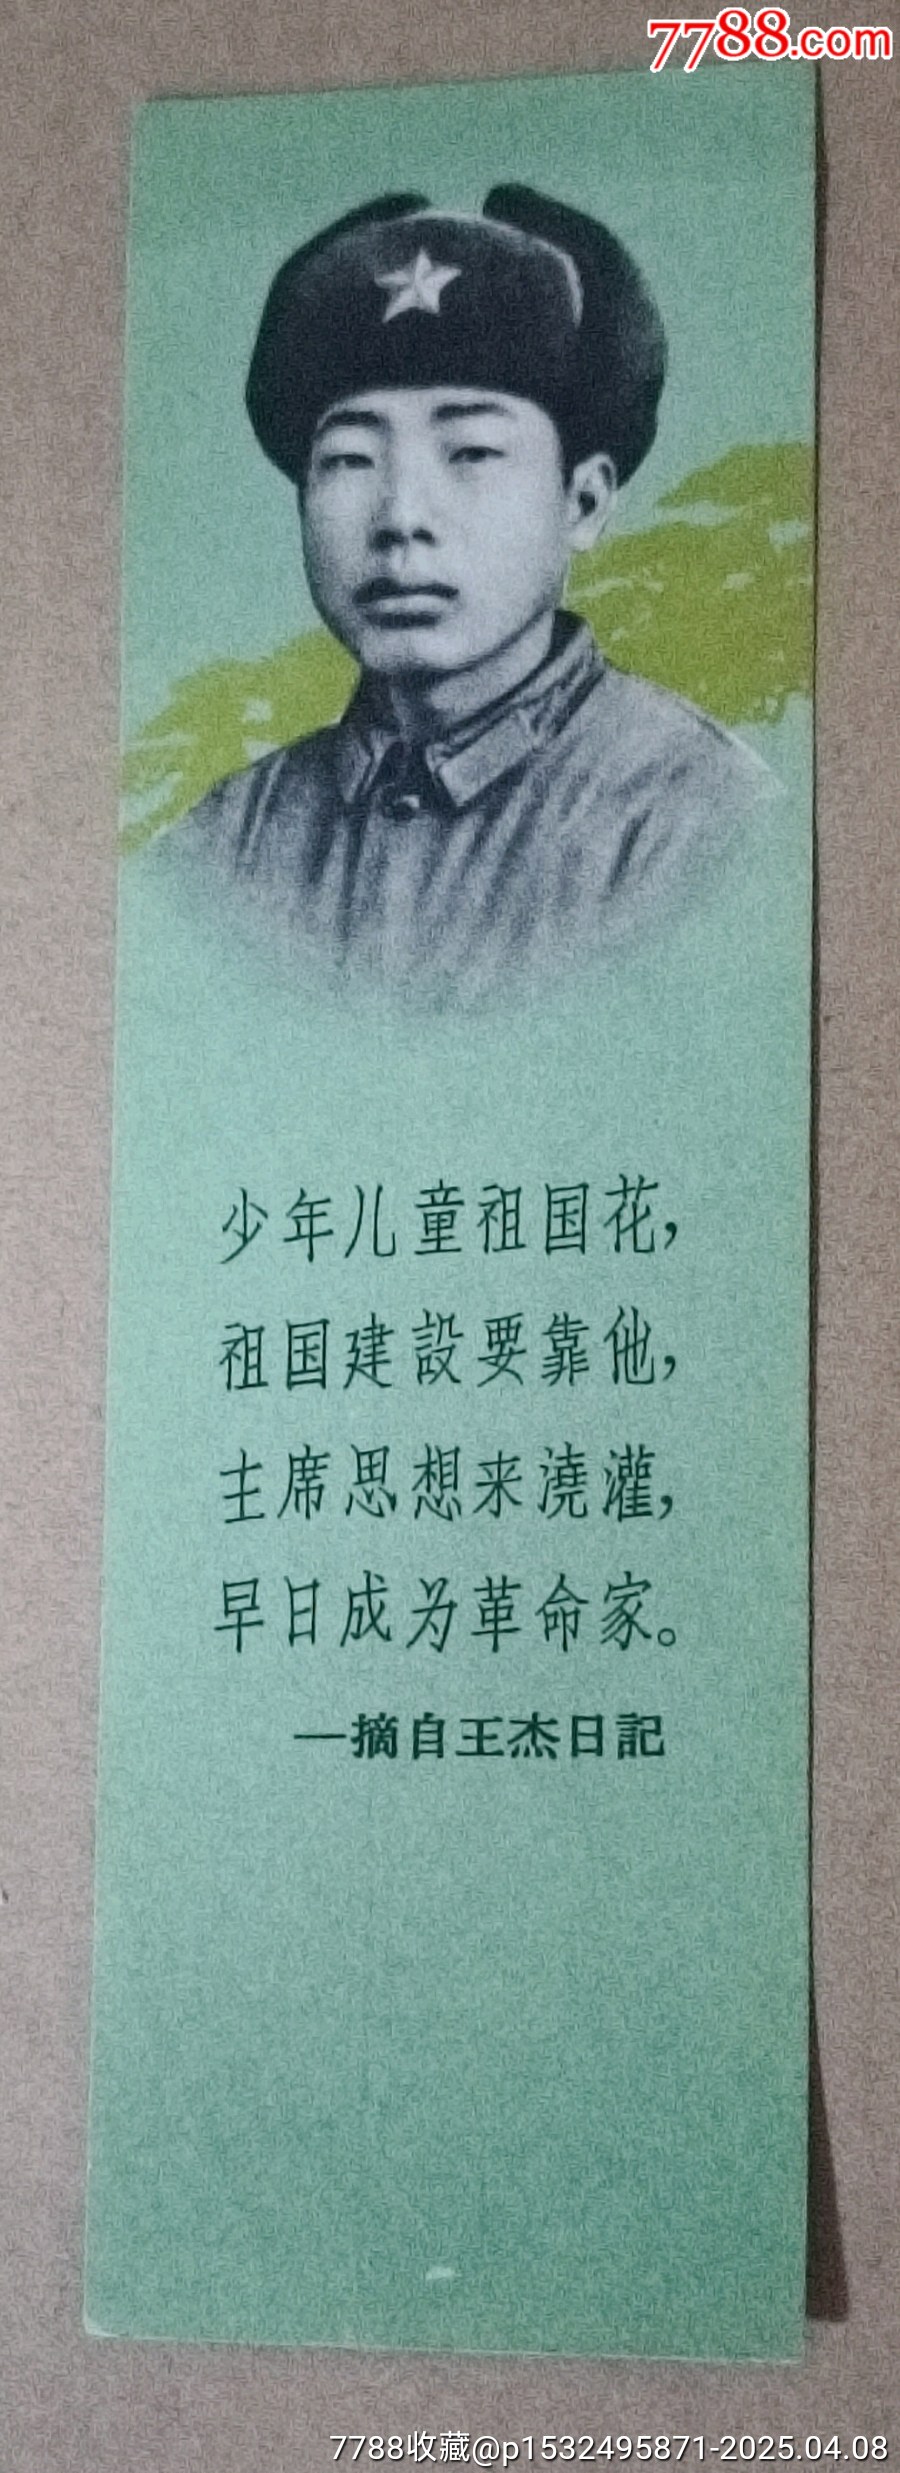 7788.com
少年儿童祖国花，
祖国建設要靠他，
主席思想来澆灌，
早日成为革命家。
—摘自王杰日記
7788收藏@p1532495871-2025.04.08